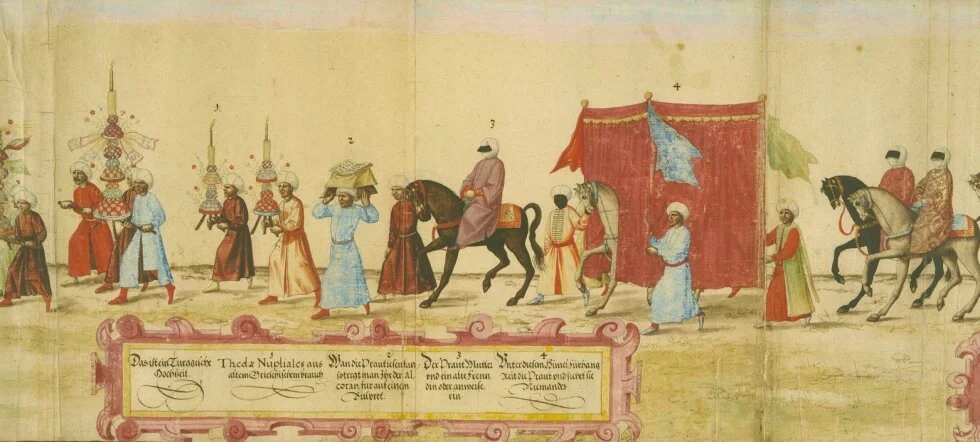 1
2
3
4
Das ist ein Türggische
Hochzeit.
1
Thedæ Nuptiales aus
altem Griechischem brauch
2
Wan die Braut
so tregt man Ihr der Al
coran für auf einem
Pulbret.
3
Der Braut Mutter
und ein alte Freun
din oder anweise
rin
4
Unter diesem Himel Fürhang
Reit die Braut und siehet sie
Niemandts